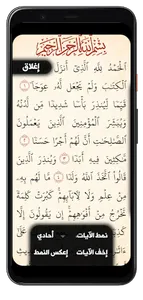 بسم الله الرحمن الرحيم
إغلاق
ٱلْحَمْدُ لِلَّهِ ٱلَّذِىٓ أَنزَلَ
ٱلْكِتَٰبَ وَلَمْ يَجْعَل لَّهُۥ عِوَجَا ۜ ١
قَيِّمًا لِّيُنذِرَ بَأْسًا شَدِيدًا مِّن
وَيُبَشِّرَ ٱلْمُؤْمِنِينَ ٱلَّذِينَ يَعْمَلُونَ
ٱلصَّٰلِحَٰتِ أَنَّ لَهُمْ أَجْرًا حَسَنًا ٢
فِيهِ أَبَدًا ٣ وَيُنذِرَ ٱلَّذِينَ
قَالُوا۟ ٱتَّخَذَ ٱللَّهُ وَلَدًا ٤ مَّا لَهُم بِهِۦ
مِنْ عِلْمٍ وَلَا لِءَابَآئِهِمْ ۚ كَبُرَتْ كَلِمَةً
تَخْرُجُ مِنْ أَفْوَٰهِهِمْ ۚ إِن يَقُولُونَ إِلَّا
نمط الآيات: أحادي
إخف الآيات إعكس النمط